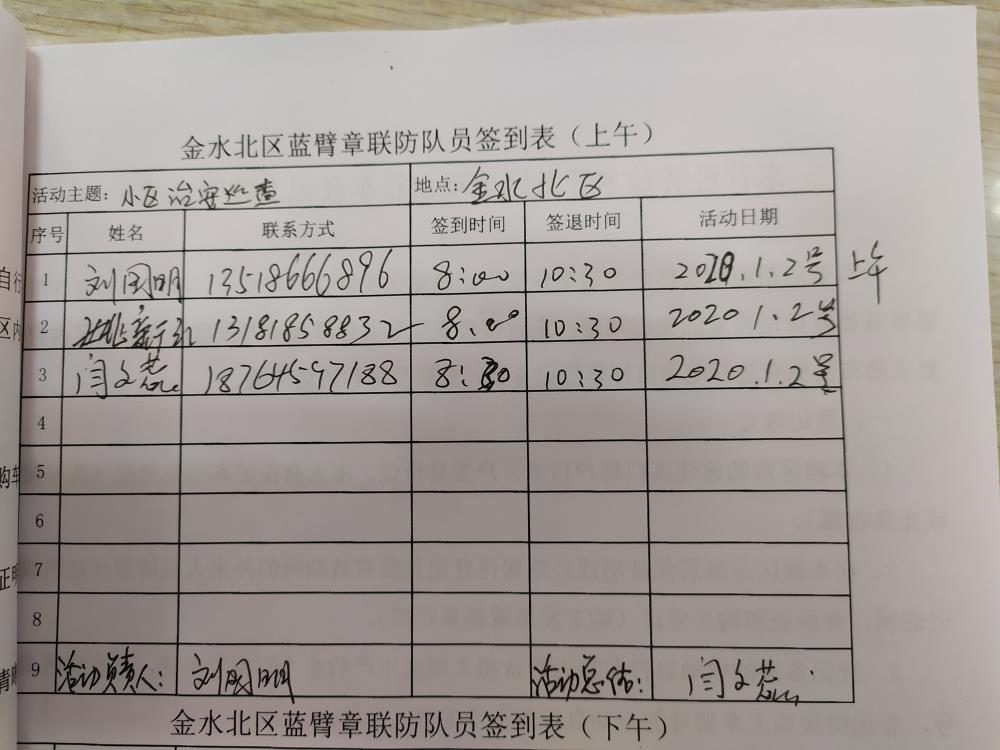 金水北区蓝臂章联防队员签到表（上午）
活动主题：小区治安巡查 地点：金水北区
序号 姓名 联系方式 签到时间 签退时间 活动日期
1 刘国明 13518666896 8:00 10:30 2020.1.2号 上午
2 13181858832 8:00 10:30 2020 1.2号
3 闫文蕊 18764597188 8:30 10:30 2020.1.2号
4
5
6
7
8
9 活动负责人： 刘国明 活动总结： 闫文蕊
金水北区蓝臂章联防队员签到表（下午）
自行
区内
购转
证明